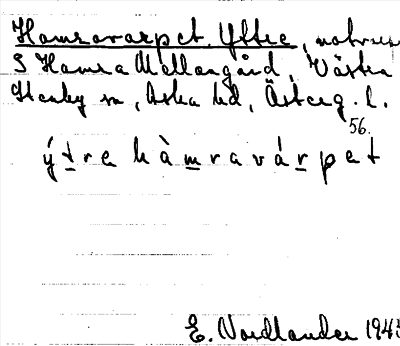 Hamravarpet, Yttre,
S Hamra Mellangård, Västra
Stenby sn, Aska hd, Österg. l.
56.
ýtre hàmravárpet
E. Nordlander 1943